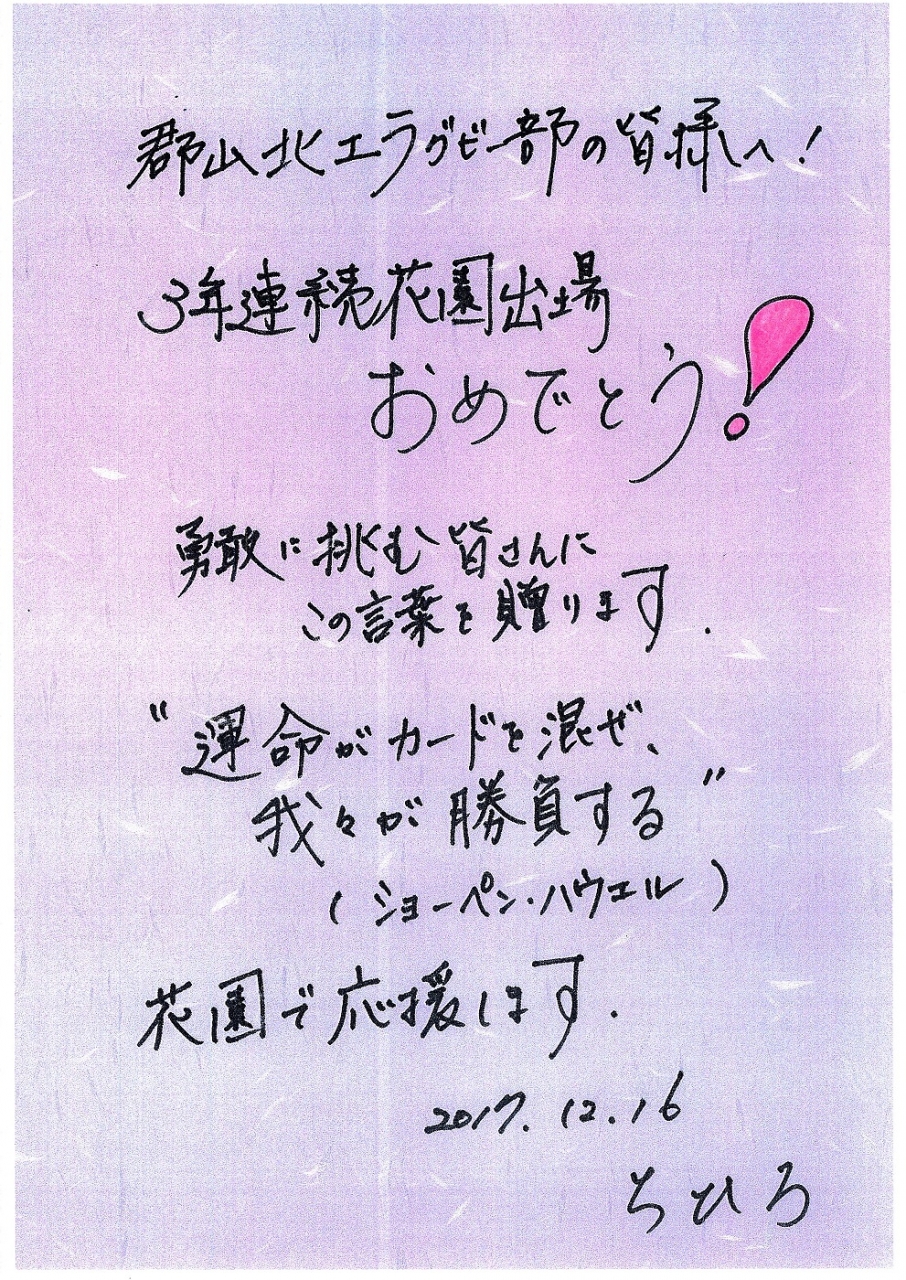 郡山北工ラグビー部の皆様へ!
3年連続花園出場
おめでとう!
勇敢に挑む皆さんに
この言葉を贈ります.
"運命がカードを混ぜ、
我々が勝負する"
(ショーペン・ハウエル)
花園で応援します.
2017.12.16
ちひろ